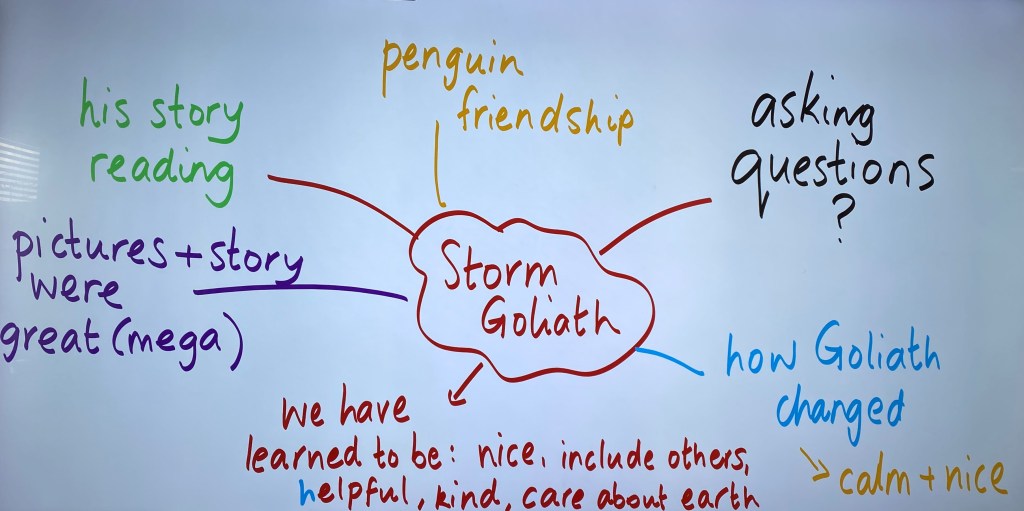 penguin
friendship
his story
reading
asking
questions
?
pictures + story
were
great (mega)
Storm
Goliath
how Goliath
changed
calm + nice
we have
learned to be: nice, include others,
helpful, kind, care about earth